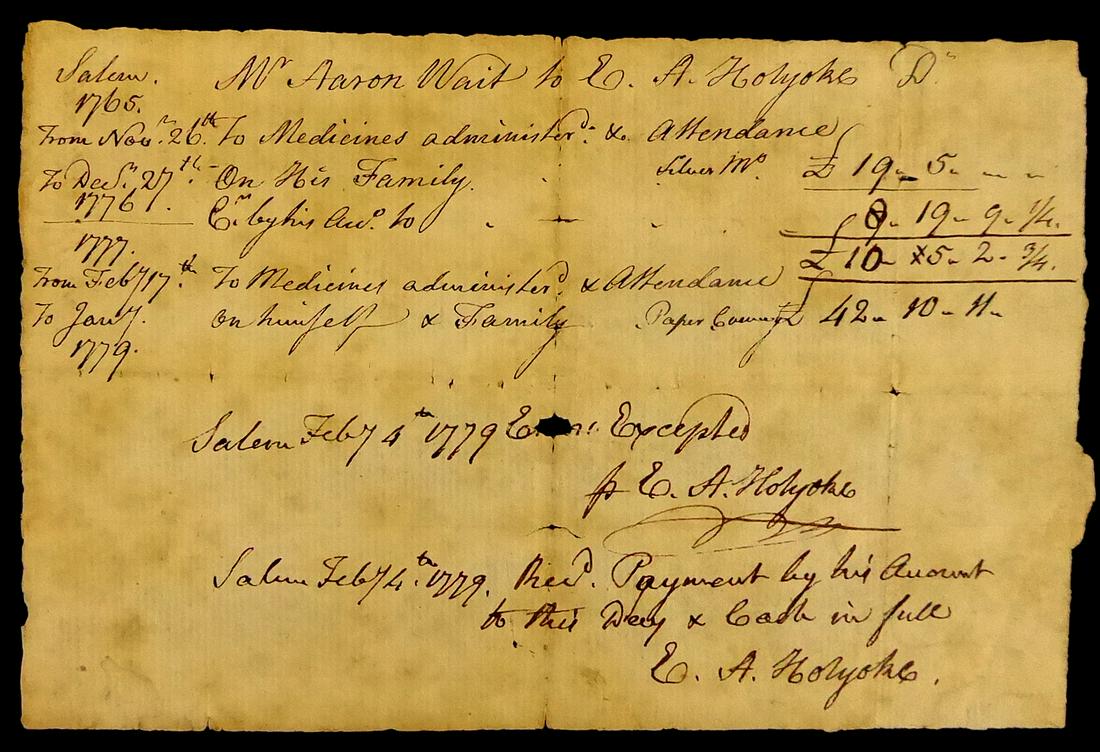 Salem. Mr Aaron Wait to E. A. Holyoke Dr
1765.
From Novr. 26th. To Medicines administerd. & Attendance
To Decr. 27th. On His Family. Silver Mo. £ 19 „ 5 „ „ „
1776. Cr. by his Acco. to 8 „ 19 „ 9 „ 1/4.
1777. £ 10 „ 5 „ 2 „ 3/4.
From Feby 17th. To Medicines administerd. & Attendance
To Jany. on himself & Family Paper Currency £ 42 „ 10 „ 11 „
1779.
Salem Feby 4th 1779 Excepted
p E. A. Holyoke
Salem Feby 4th. 1779. Recd. Payment by his Account
to this Day & Cash in full
E. A. Holyoke.